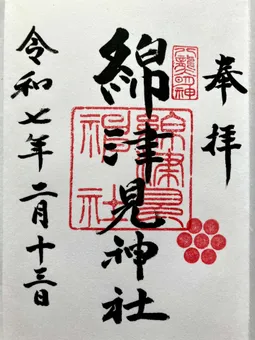 奉拝
八龍神
綿津見神社
綿津見神社
令和七年二月十三日